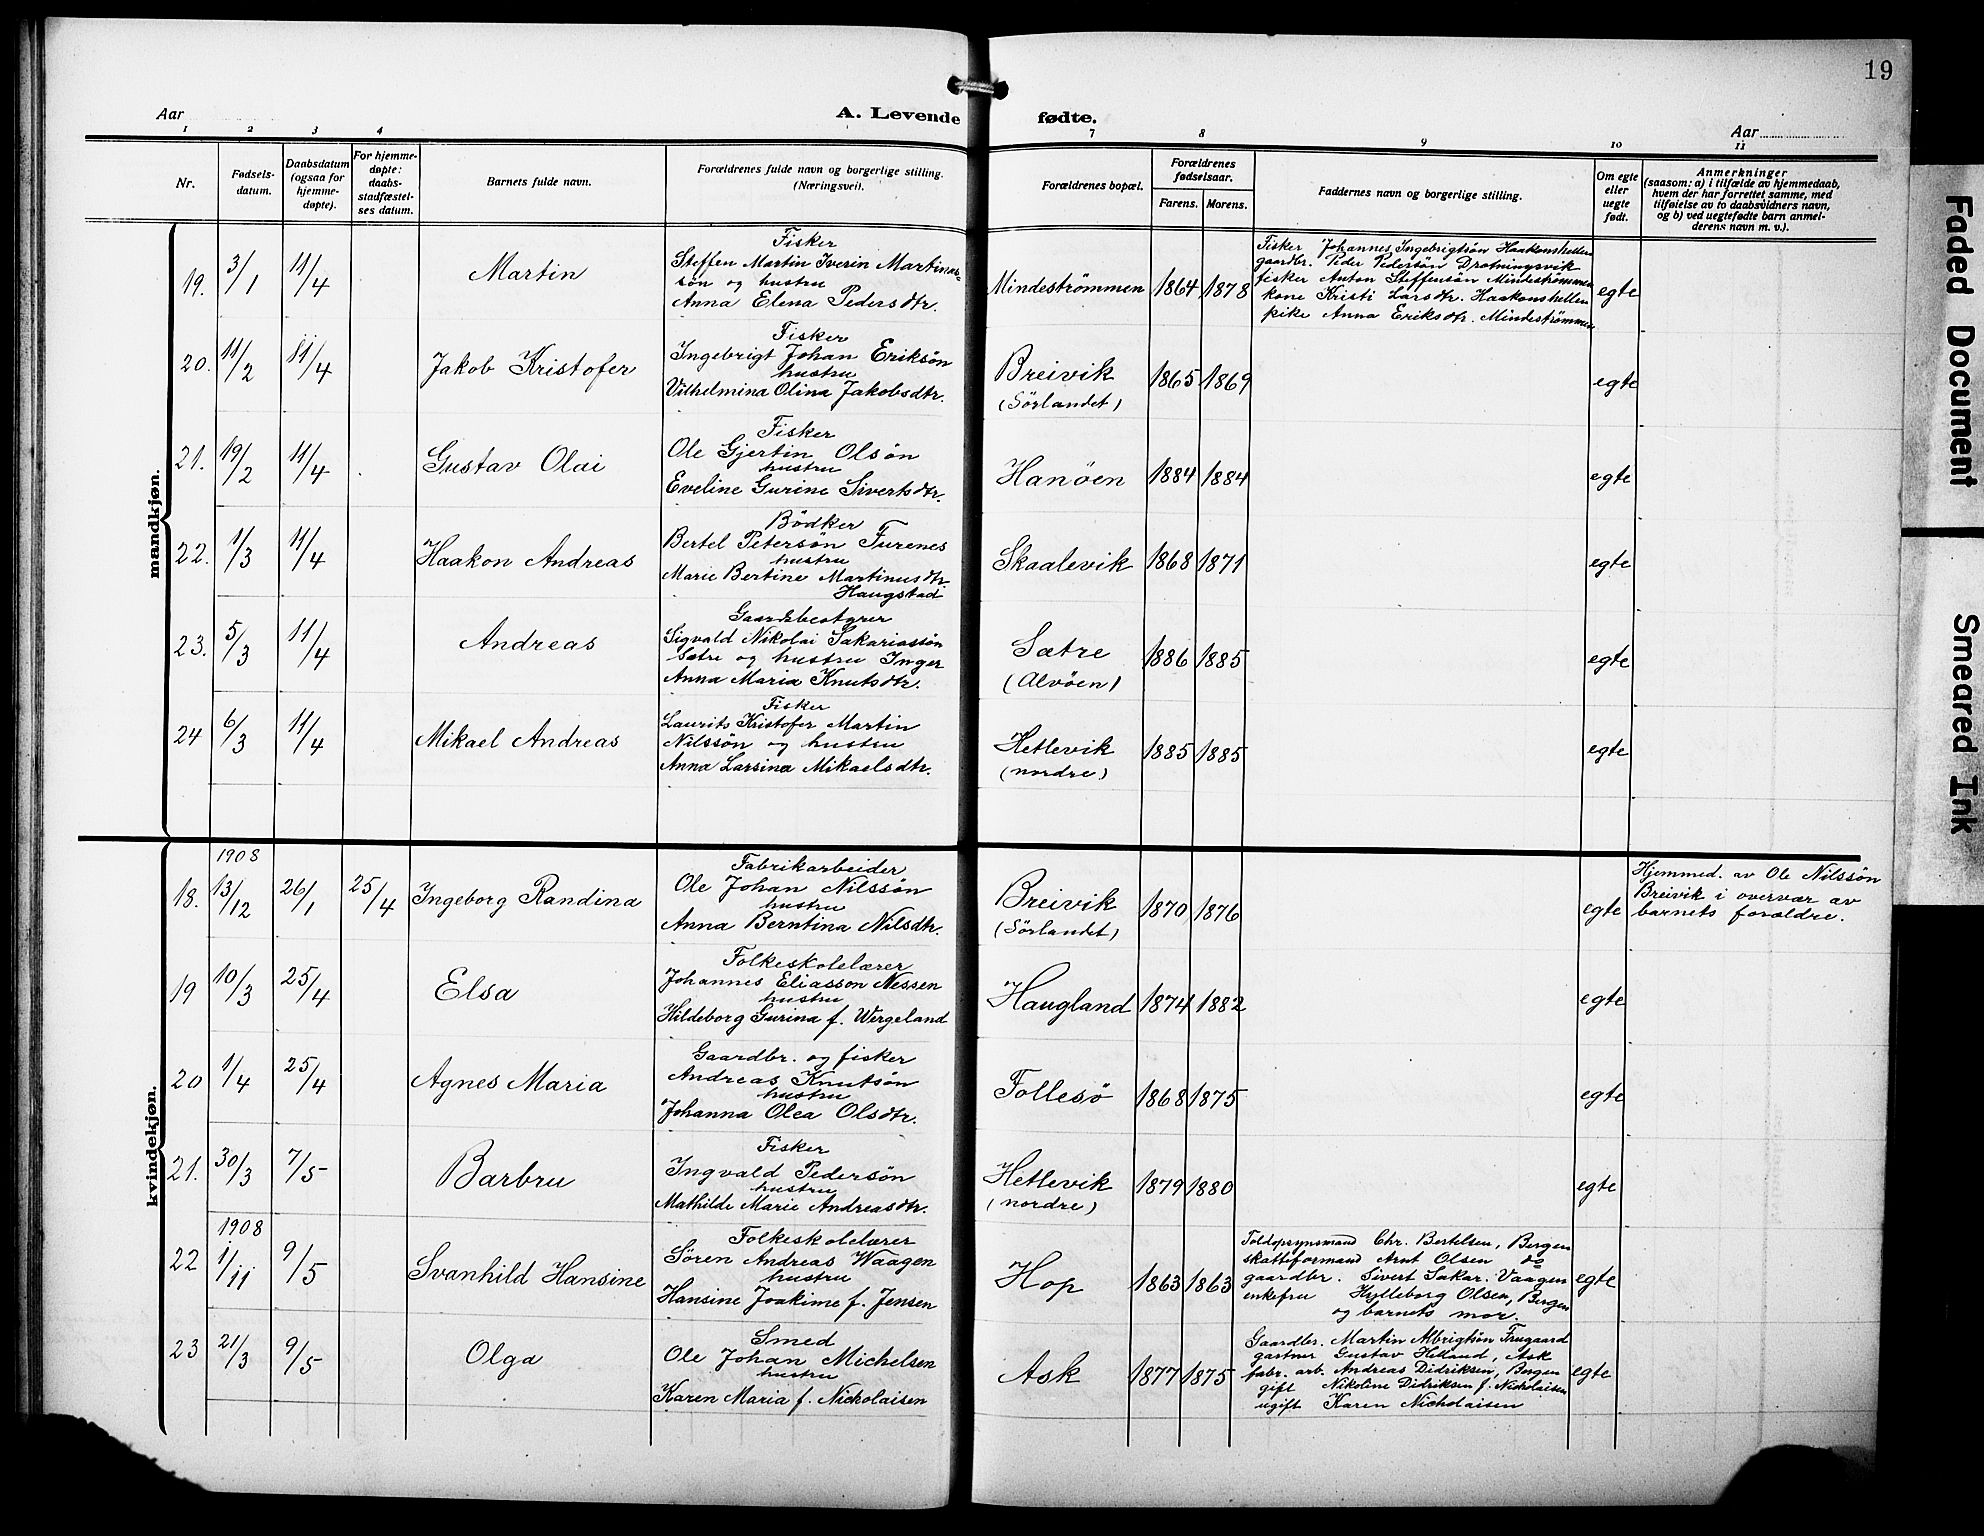 19
Aar
A. Levende fødte.
Aar
1 2 3 4 7 8 9 10 11
Nr.
Fødsels-
datum.
Daabsdatum
(ogsaa for
hjemme-
døpte).
For hjemme-
døpte:
daabs-
stadfæstel-
ses datum.
Barnets fulde navn.
Forældrenes fulde navn og borgerlige stilling.
(Næringsvei).
Forældrenes bopæl.
Forældrenes
fødselsaar.
Farens. Morens.
Faddernes navn og borgerlige stilling.
Om egte
eller
uegte
født.
Anmerkninger
(saasom: a) i tilfælde av hjemmedaab,
hvem der har forrettet samme, med
tilføielse av to daabsvidners navn,
og b) ved uegtefødte barn anmel-
derens navn m. v.).
mandkjøn.
19. 3/1 11/4 Martin
Fisker
Steffen Martin Iverin Martinas-
søn og hustru
Anna Elena Pedersdtr.
Mindestrømmen 1864 1878
Fisker Johannes Ingebrigtsøn Haakonshellen
gaardbr. Peder Pedersøn Drotningsvik
fisker Anton Steffensøn Mindestrømmen
kone Kristi Larsdtr. Haakonshellen
pike Anna Eriksdtr. Mindestrømmen
egte
20. 11/2 11/4 Jakob Kristofer
Fisker
Ingebrigt Johan Eriksøn
hustru
Vilhelmina Olina Jakobsdtr.
Breivik
(Sörlandet)
1865 1869 egte
21. 19/2 11/4 Gustav Olai
Fisker
Ole Gjertin Olsøn
hustru
Eveline Gurine Sivertsdtr.
Hanöen 1884 1884 egte
22. 1/3 11/4 Haakon Andreas
Bödker
Bertel Petersøn Furenes
hustru
Marie Bertine Martinusdtr.
Haugstad
Skaalevik 1868 1871 egte
23. 5/3 11/4 Andreas
Gaardsbestyrer
Sigvald Nikolai Sakariassön
Sætre og hustru Inger
Anna Maria Knutsdtr.
Sætre
(Alvöen)
1886 1885 egte
24 6/3 11/4 Mikael Andreas
Fisker
Laurits Kristofer Martin
Nilssön og hustru
Anna Larsina Mikaelsdtr.
Hetlevik
(nordre)
1885 1885 egte
kvindekjøn.
1908
18. 13/12 26/1 25/4 Ingeborg Randina
Fabrikarbeider
Ole Johan Nilssön
hustru
Anna Berntina Nilsdtr.
Breivik
(Sörlandet)
1870 1876 egte
Hjemmed. av Ole Nilssön
Breivik i overvær av
barnets forældre.
19 10/3 25/4 Elsa
Folkeskolelærer
Johannes Eliasson Nessen
hustru
Hildeborg Gurina f. Wergeland
Haugland 1874 1882 egte
20 1/4 25/4 Agnes Maria
Gaardbr. og fisker
Andreas Knutsön
hustru
Johanna Olea Olsdtr.
Follesö 1868 1875 egte
21. 30/3 7/5 Barbru
Fisker
Ingvald Pedersön
hustru
Mathilde Marie Andreasdtr.
Hetlevik
(nordre)
1879 1880 egte
1908
22 1/11 9/5 Svanhild Hansine
Folkeskolelærer
Sören Andreas Waagen
hustru
Hansine Joakime f. Jensen
Hop 1863 1863
Toldopsynsmand Chr. Bertelsen, Bergen
skatteformand Arnt Olsen do
gaardbr. Sivert Sakar. Vaagen
enkefru Hylleborg Olsen, Bergen
og barnets mor.
egte
23 21/3 9/5 Olga
Smed
Ole Johan Michelsen
hustru
Karen Maria f. Nickolaisen
Ask 1877 1875
Gaardbr. Martin Albrigtsön Frugaard
gartner Gustav Helland, Ask
fabr. arb. Andreas Didriksen, Bergen
gift Nikoline Didriksen f. Nicholaisen
ugift Karen Nicholaisen
egte
Faded Document
Smeared Ink